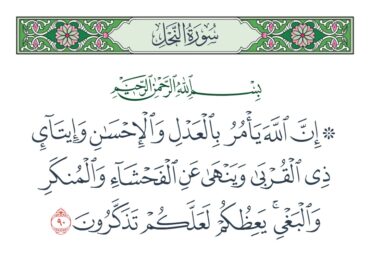 سُورَةُ النَّحْلِ
بِسْمِ اللَّهِ الرَّحْمَٰنِ الرَّحِيمِ
۞ إِنَّ اللَّهَ يَأْمُرُ بِالْعَدْلِ وَالْإِحْسَانِ وَإِيتَاءِ
ذِي الْقُرْبَىٰ وَيَنْهَىٰ عَنِ الْفَحْشَاءِ وَالْمُنكَرِ
وَالْبَغْيِ ۚ يَعِظُكُمْ لَعَلَّكُمْ تَذَكَّرُونَ ٩٠